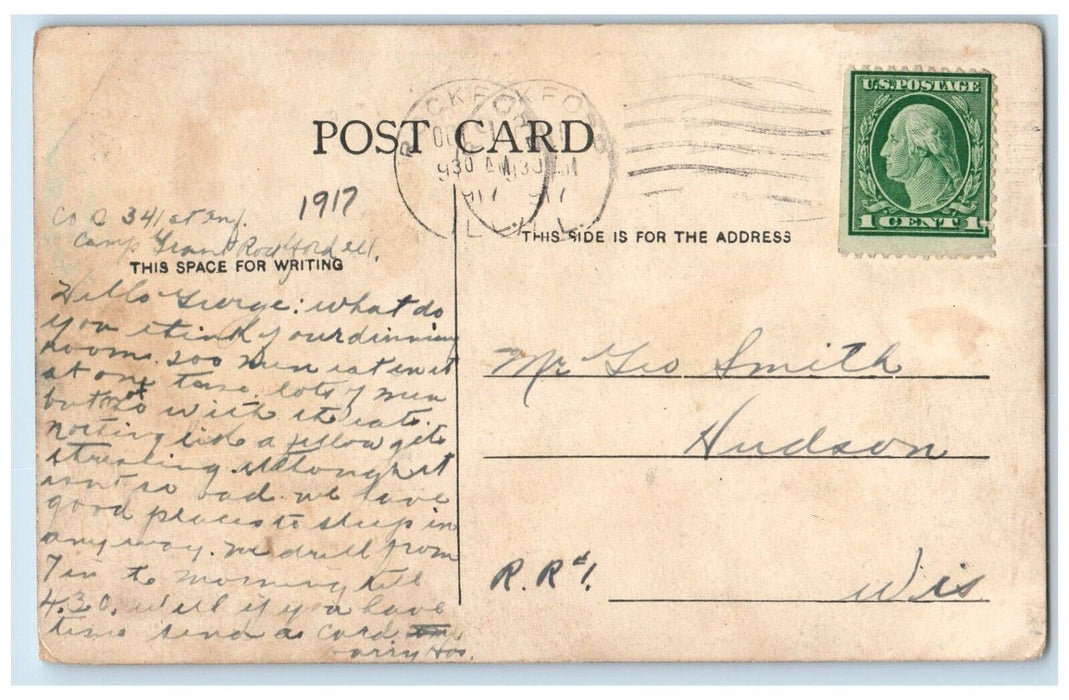 POST CARD
ROCKFORD
OCT
930 AM
1917
ILL.
U.S. POSTAGE
1 CENT 1
1917
Co C 341st Inf.
Camp Grant Rockford Ill.
THIS SPACE FOR WRITING
THIS SIDE IS FOR THE ADDRESS
Hello George: what do
you think of our dinning
room. 200 men eat in it
at one time lots of men
but not so with the eats.
nothing like a fellow gets
althoug it
isnt so bad. we have
good places to sleep in
any way. We drill from
7 in to morning till
4.30. Well if you have
time send a card
Mr Geo Smith
Hudson
R.R #1.
Wis